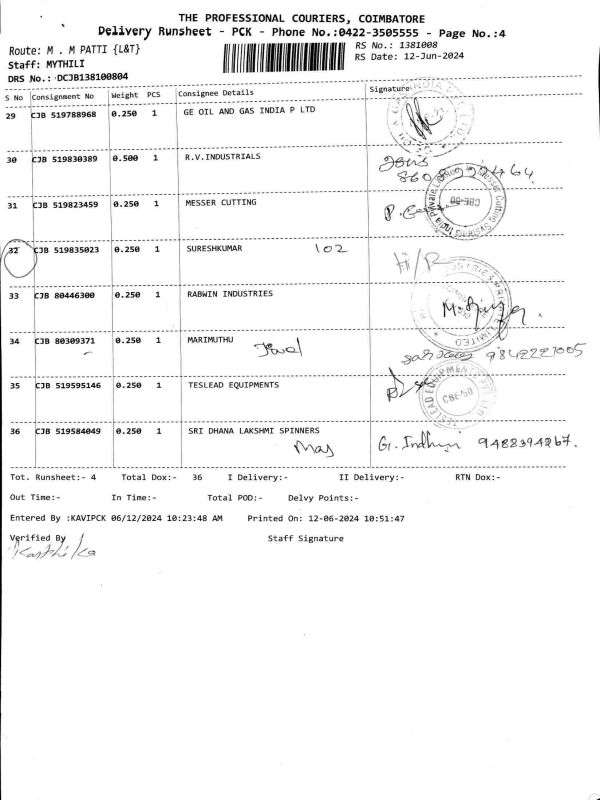 THE PROFESSIONAL COURIERS, COIMBATORE
Delivery Runsheet - PCK - Phone No.:0422-3505555 - Page No.:4
Route: M . M PATTI {L&T}
RS No.: 1381008
Staff: MYTHILI
RS Date: 12-Jun-2024
DRS No.: DCJB138100804
S No Consignment No Weight PCS Consignee Details Signature
29 CJB 519788968 0.250 1 GE OIL AND GAS INDIA P LTD
30 CJB 519830389 0.500 1 R.V.INDUSTRIALS
31 CJB 519823459 0.250 1 MESSER CUTTING
32 CJB 519835023 0.250 1 SURESHKUMAR 102 H/R
33 CJB 80446300 0.250 1 RABWIN INDUSTRIES
34 CJB 80309371 0.250 1 MARIMUTHU
9842221005
35 CJB 519595146 0.250 1 TESLEAD EQUIPMENTS
TESLEAD EQUIPMENTS PVT LTD
CBE-50
36 CJB 519584049 0.250 1 SRI DHANA LAKSHMI SPINNERS
G. Indhu 9488394267.
Tot. Runsheet:- 4 Total Dox:- 36 I Delivery:- II Delivery:- RTN Dox:-
Out Time:- In Time:- Total POD:- Delvy Points:-
Entered By :KAVIPCK 06/12/2024 10:23:48 AM Printed On: 12-06-2024 10:51:47
Verified By Staff Signature
Karthika